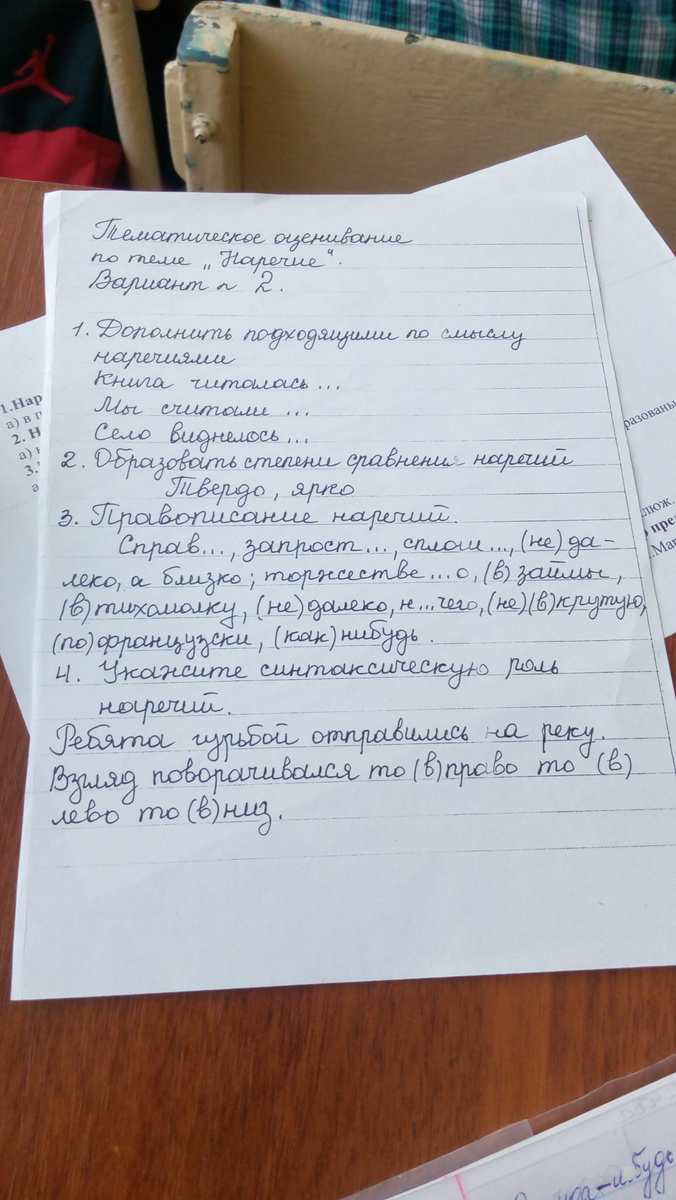 Тематическое оценивание
по теме „Наречие“.
Вариант № 2.
1. Дополнить подходящими по смыслу
наречиями
Книга читалась ...
Мы считали ...
Село виднелось ...
2. Образовать степени сравнения наречий
Твердо, ярко
3. Правописание наречий.
Справ..., запрост..., сплош..., (не)да-
леко, а близко; торжестве...о, (в)займы,
(в)тихомолку, (не)далеко, н...чего, (не)(в)крутую,
(по)французски, (как)нибудь.
4. Укажите синтаксическую роль
наречий.
Ребята гурьбой отправились на реку.
Взгляд поворачивался то (в)право то (в)
лево то (в)низ.
1.Нар
а) в
2. Н
а)
3.
а
разованы